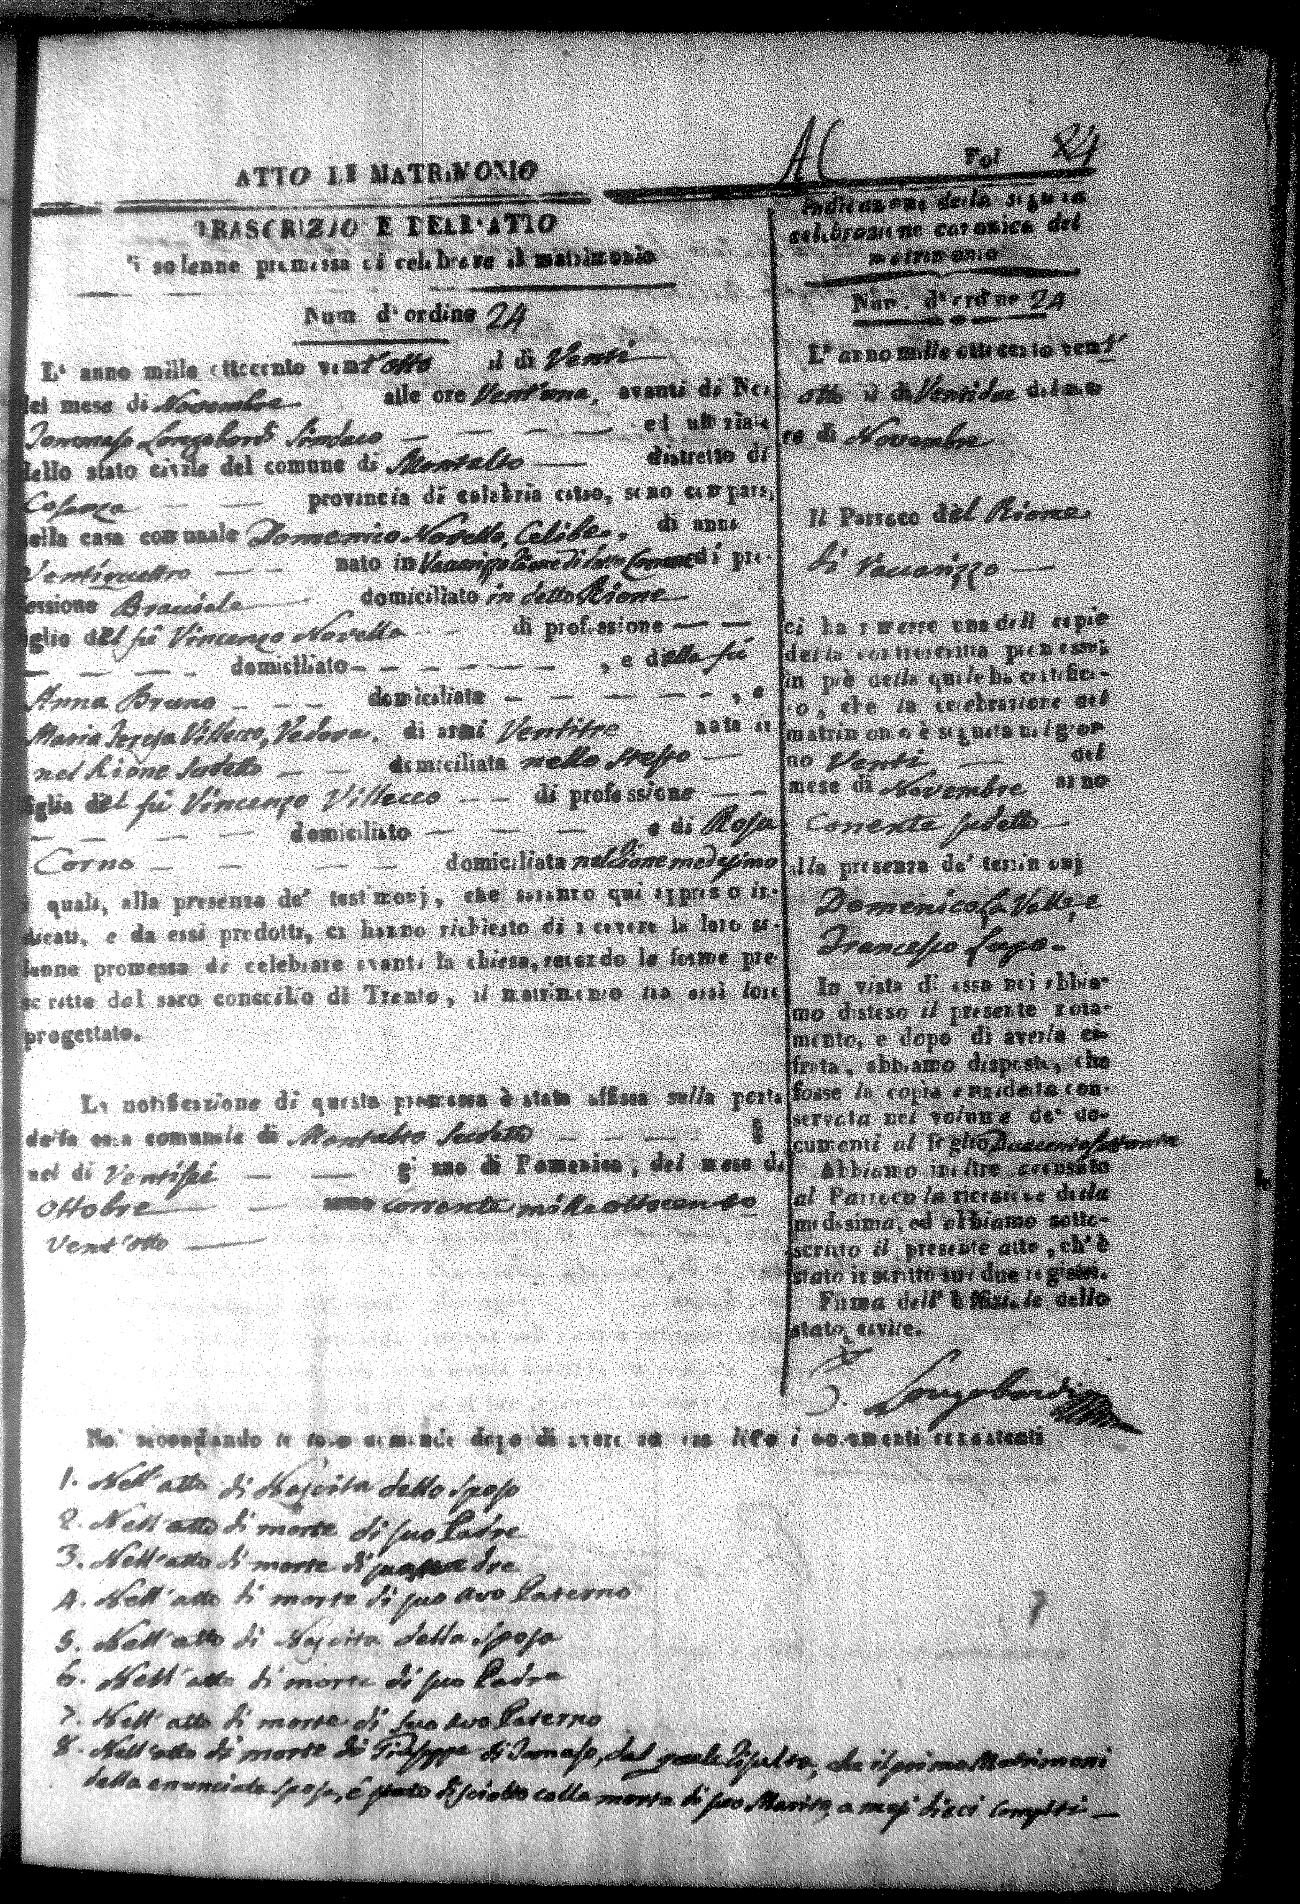 AC
Fol 24
ATTO DI MATRIMONIO
TRASCRIZIONE DELL'ATTO
di solenne promessa di celebrare il matrimonio
Num d'ordine 24
L' anno mille ottocento vent'otto il di Venti
del mese di Novembre alle ore Vent'una, avanti di Noi
Tommaso Longobardi Sindaco ed uffizia-
dello stato civile del comune di Montalto distretto di
Cosenza provincia di calabria citso, sono compars,
nella casa comunale Domenico Novello, Celibe, di anni
Ventiquattro nato in Vaccarizzo Rione di detto Comune di pro-
fessione Bracciale domiciliato in detto Rione
figlio del fù Vincenzo Novello di professione
domiciliato , e della fù
Anna Bruno domiciliata , e
Maria Teresa Villecco, Vedova, di anni Ventitre nata
nel Rione sudetto domiciliata nello stesso
figlia del fù Vincenzo Villecco di professione
domiciliato e di Rosa
Corno domiciliata nel Rione medesimo
i quali, alla presenza de' testimonj, che saranno qui appresso in-
dicati, e da essi prodotti, ci hanno richiesto di ricevere la loro so-
lenne promessa di celebrare avanti la chiesa, secondo le forme pre-
scritte dal sacro conscilio di Trento, il matrimonio tra essi loro
progettato.
La notificazione di questa promessa è stata affissa sulla porta
della casa comunale di Montalto sudetto
nel di Ventisei giorno di Domenica, del mese di
Ottobre corrente mille ottocento
Vent'otto
Noi secondando le loro domande dopo di avere ad essi letto i documenti consistenti
1. Nell'atto di Nascita dello sposo
2. Nell'atto di morte di suo Padre
3. Nell'atto di morte di sua Madre
4. Nell'atto di morte di suo avo Paterno
5. Nell'atto di Nascita della sposa
6. Nell'atto di morte di suo Padre
7. Nell'atto di morte di suo avo Paterno
8. Nell'atto di morte di Giuseppe di Tomaso, dal quale risulta, che il primo Matrimoni
della enunciata sposa, è stato disciolto colla morte di suo Marito, a mesi dieci compiti
Indicazione della seguita
celebrazione canonica del
matrimonio
Num. d'ordine 24
L' anno mille ottocento vent'
otto il di Ventidue del me
se di Novembre
Il Parroco del Rione
di Vaccarizzo
ci ha rimesso una delle copie
della controscritta promessa;
in piè della quale ha certifica-
to, che la celebrazione del
matrimonio è seguita nel gior-
no Venti del
mese di Novembre anno
Corrente sudetto
alla presenza de' testimonj
Domenico La Valle, e
Francesco Lupo.
In vista di essa noi abbia-
mo disteso il presente nota-
mento, e dopo di averla ci-
frata, abbiamo disposto, che
fosse la copia anzidetta con-
servata nel volume de' do-
cumenti al foglio Duecentosessanta
Abbiamo inoltre accusato
al Parroco la ricezione della
medesima, ed abbiamo sotto-
scritto il presente atto, ch' è
stato inscritto sui due registri.
Firma dell' Uffiziale dello
stato civile.
T. Longobardi